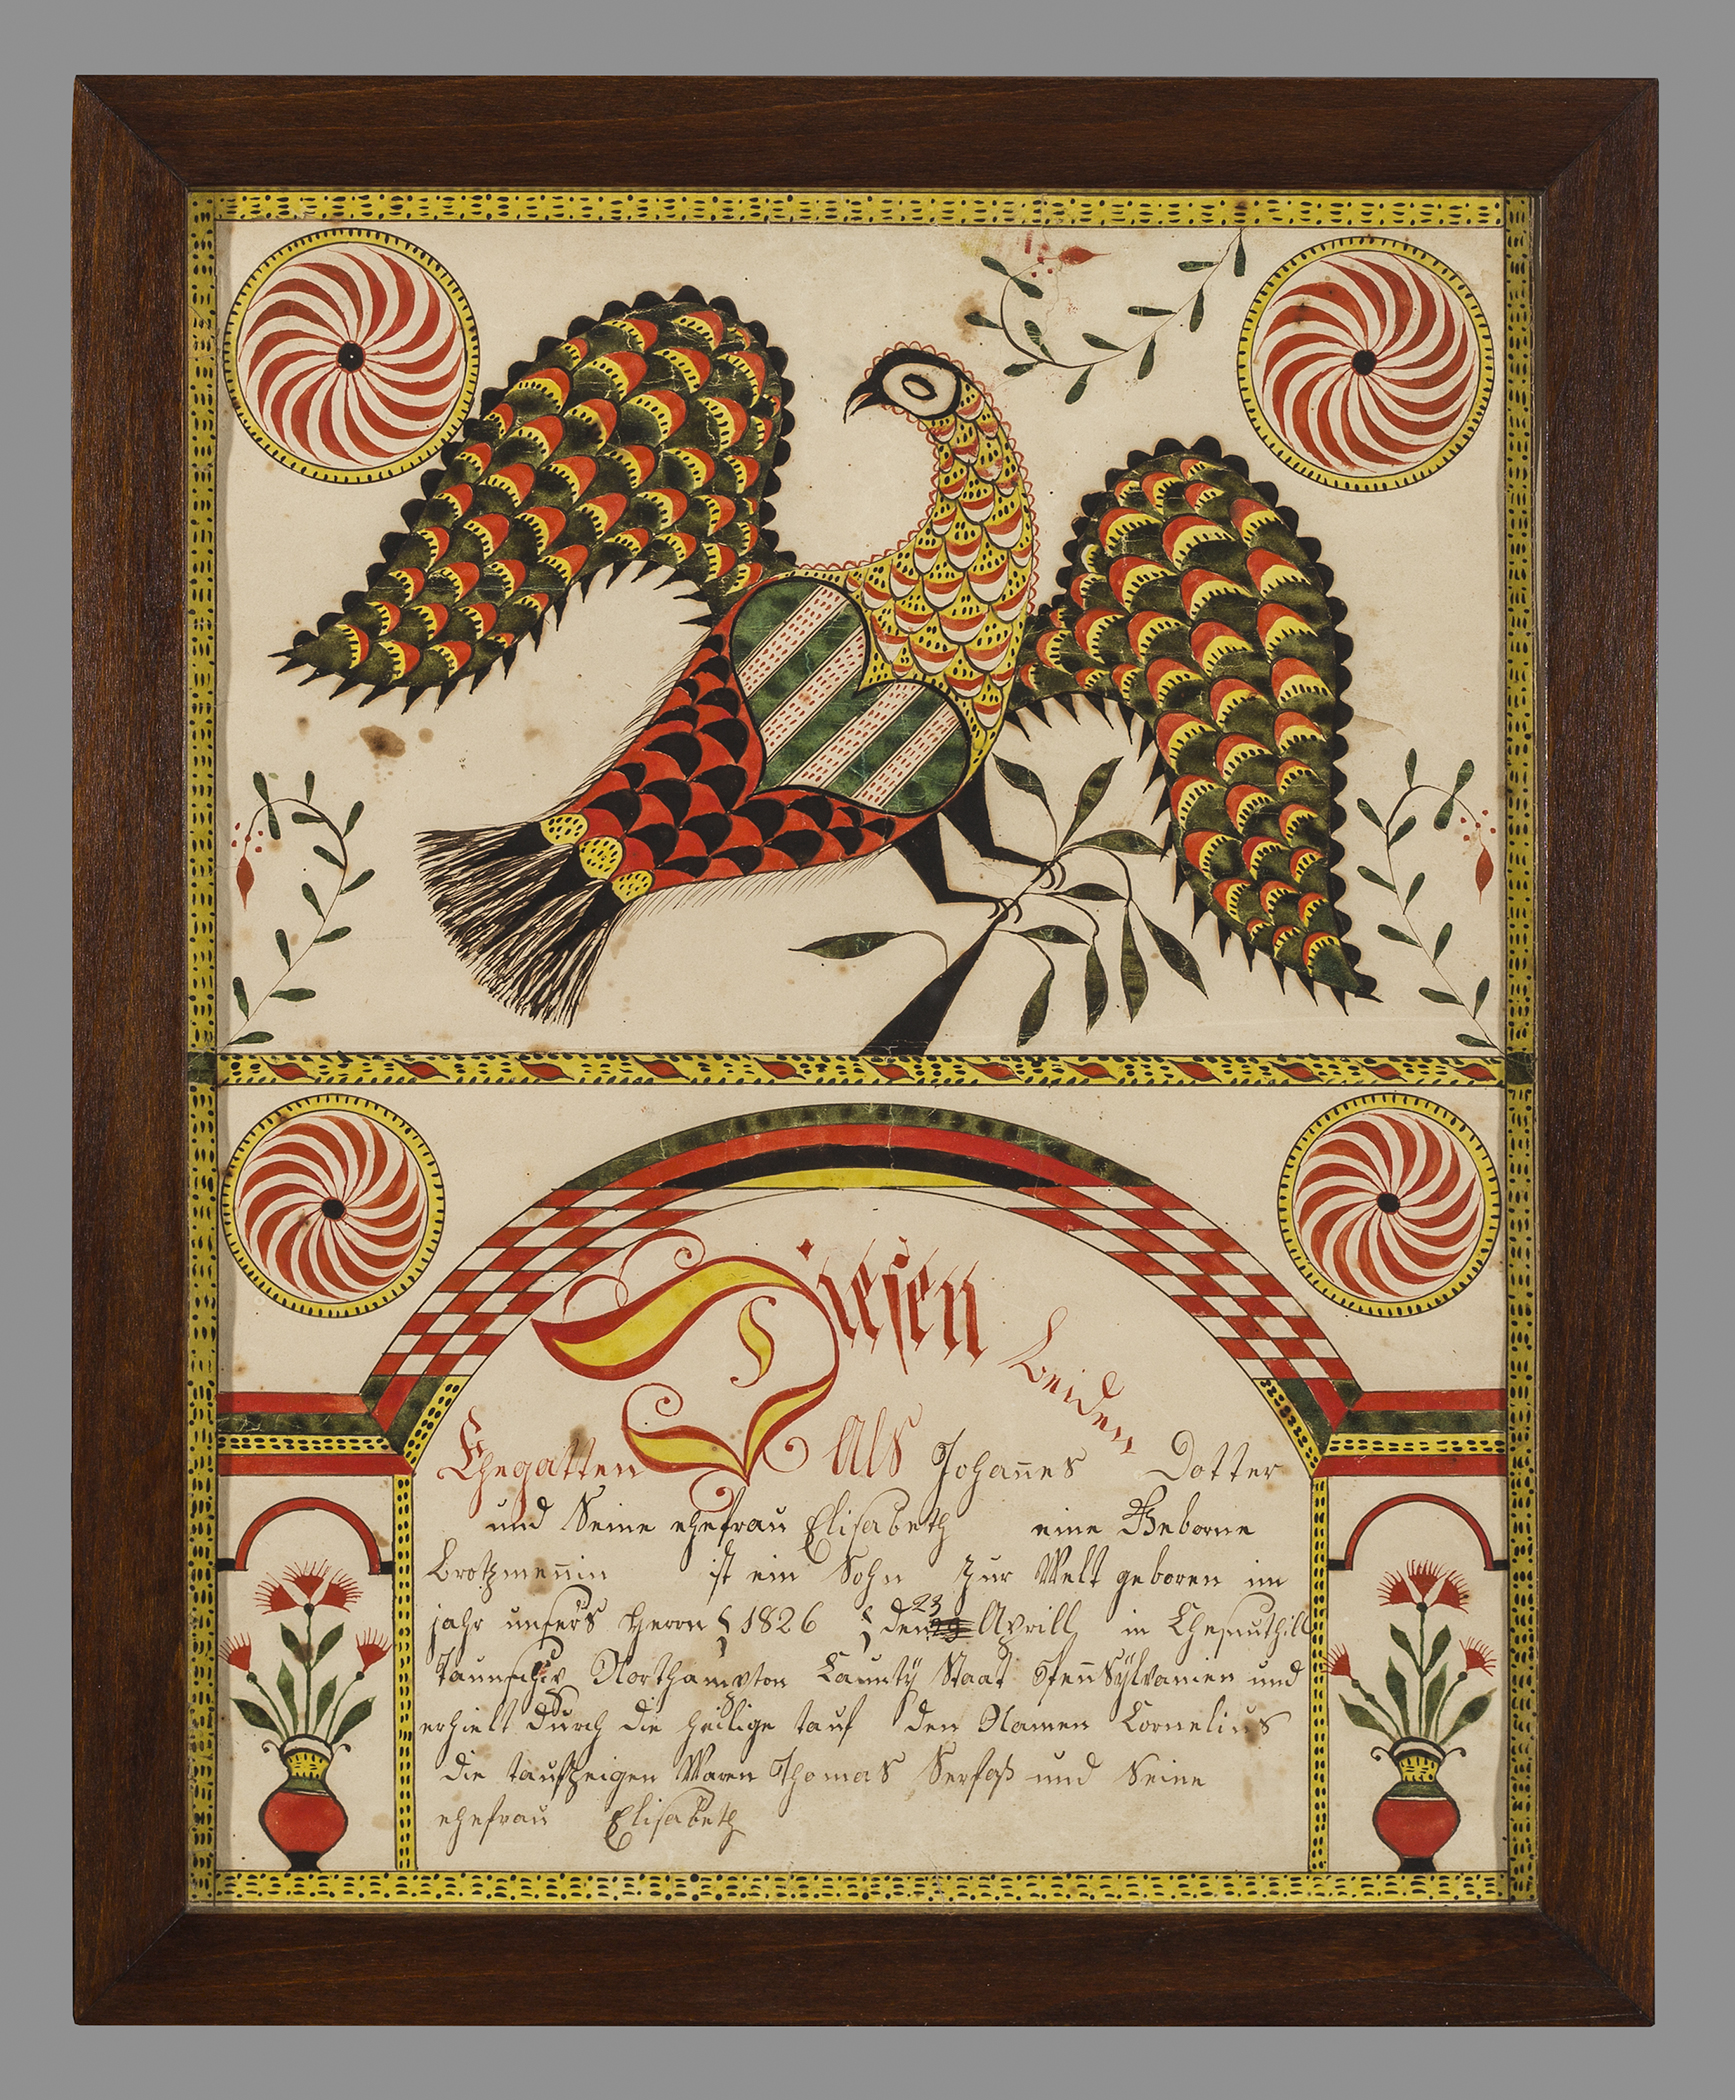 Diesen beiden
Ehegatten als Johannes Dotter
und Seine ehefrau Elisabeth eine Geborne
Brotzmennin ist ein Sohn zur Welt geboren im
jahr unsers Herrn 1826 den 23 Aprill in Chesnuthill
Taunschip Northampton Caunty Staat Pennsÿlvanien und
erhielt durch die heilige tauf den Namen Cornelius
die taufzeigen Waren Thomas Serfaß und Seine
ehefrau Elisabeth